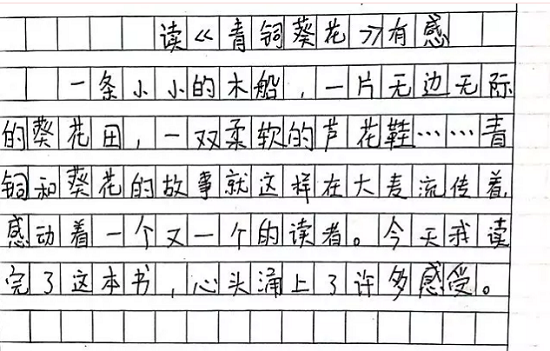 读《青铜葵花》有感
一条小小的木船，一片无边无际
的葵花田，一双柔软的芦花鞋……青
铜和葵花的故事就这样在大麦流传着，
感动着一个又一个的读者。今天我读
完了这本书，心头涌上了许多感受。